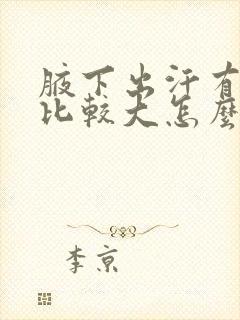 腋下出汗有
比較大怎麼
李京